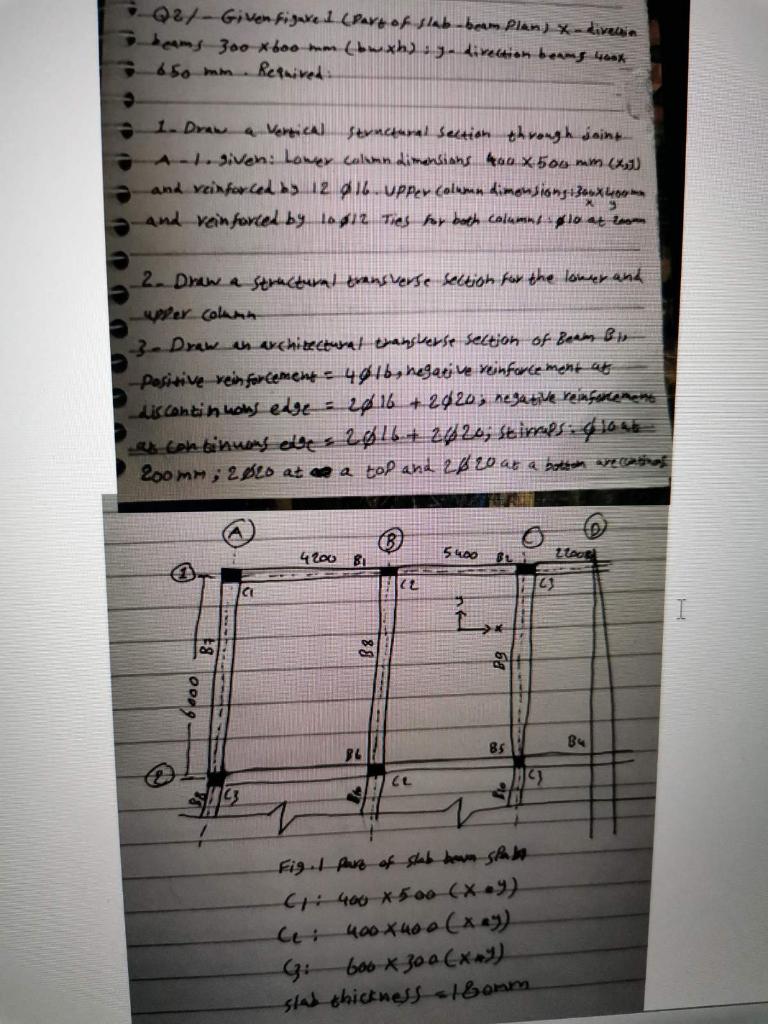 Q2/- Given figure 1 (Part of slab-beam Plan) x-direction
beams 300 x 600 mm (bwxh); y-direction beams 400x
650 mm. Required:
1- Draw a vertical structural section through joint
A-1. given: Lower column dimensions 400 x 500 mm (x,y)
and reinforced by 12 Ø16. Upper column dimensions: 300x400mm
x y
and reinforced by 10Ø12 Ties for both columns: Ø10 at 200mm
2- Draw a structural transverse section for the lower and
upper column
3- Draw an architectural transverse section of Beam B1,
Positive reinforcement = 4Ø16, negative reinforcement at
discontinuous edge = 2Ø16 + 2Ø20; negative reinforcement
at continuous edge = 2Ø16 + 2Ø20; stirrups: Ø10 at
200mm; 2Ø20 at a top and 2Ø20 at a bottom are continuous
A B C D
1 4200 B1 5400 B2 2200
C1 C2 C3
y
x
B7 B8 B9
6000
B6 B5 B4
2 C3 C2 C3
B8 B10 B10
Fig.1 Part of slab beam
C1: 400 x 500 (x*y)
C2: 400 x 400 (x*y)
C3: 600 x 300 (x*y)
slab thickness = 180mm